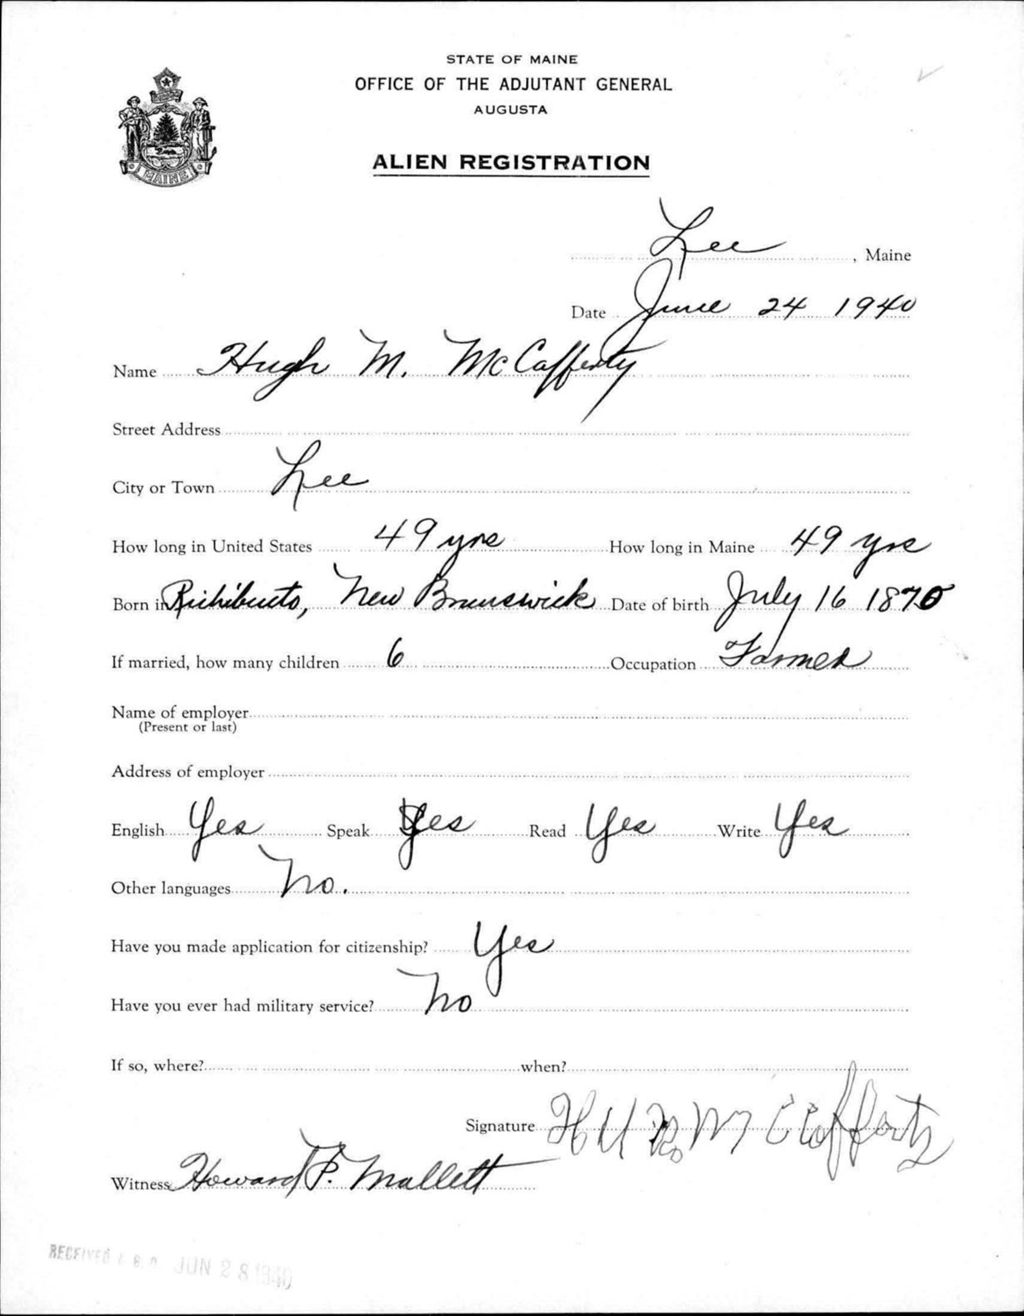 STATE OF MAINE
OFFICE OF THE ADJUTANT GENERAL
AUGUSTA
ALIEN REGISTRATION
MAINE
Lee, Maine
Date June 24 1940
Name Hugh M. McCafferty
Street Address
City or Town Lee
How long in United States 49 yrs How long in Maine 49 yrs
Born in Richibucto, New Brunswick Date of birth July 16 1870
If married, how many children 6 Occupation Farmer
Name of employer
(Present or last)
Address of employer
English Yes Speak Yes Read Yes Write Yes
Other languages No.
Have you made application for citizenship? Yes
Have you ever had military service? No
If so, where? when?
Signature
Witness Howard F. Mallett
RECEIVED JUN 28 1940